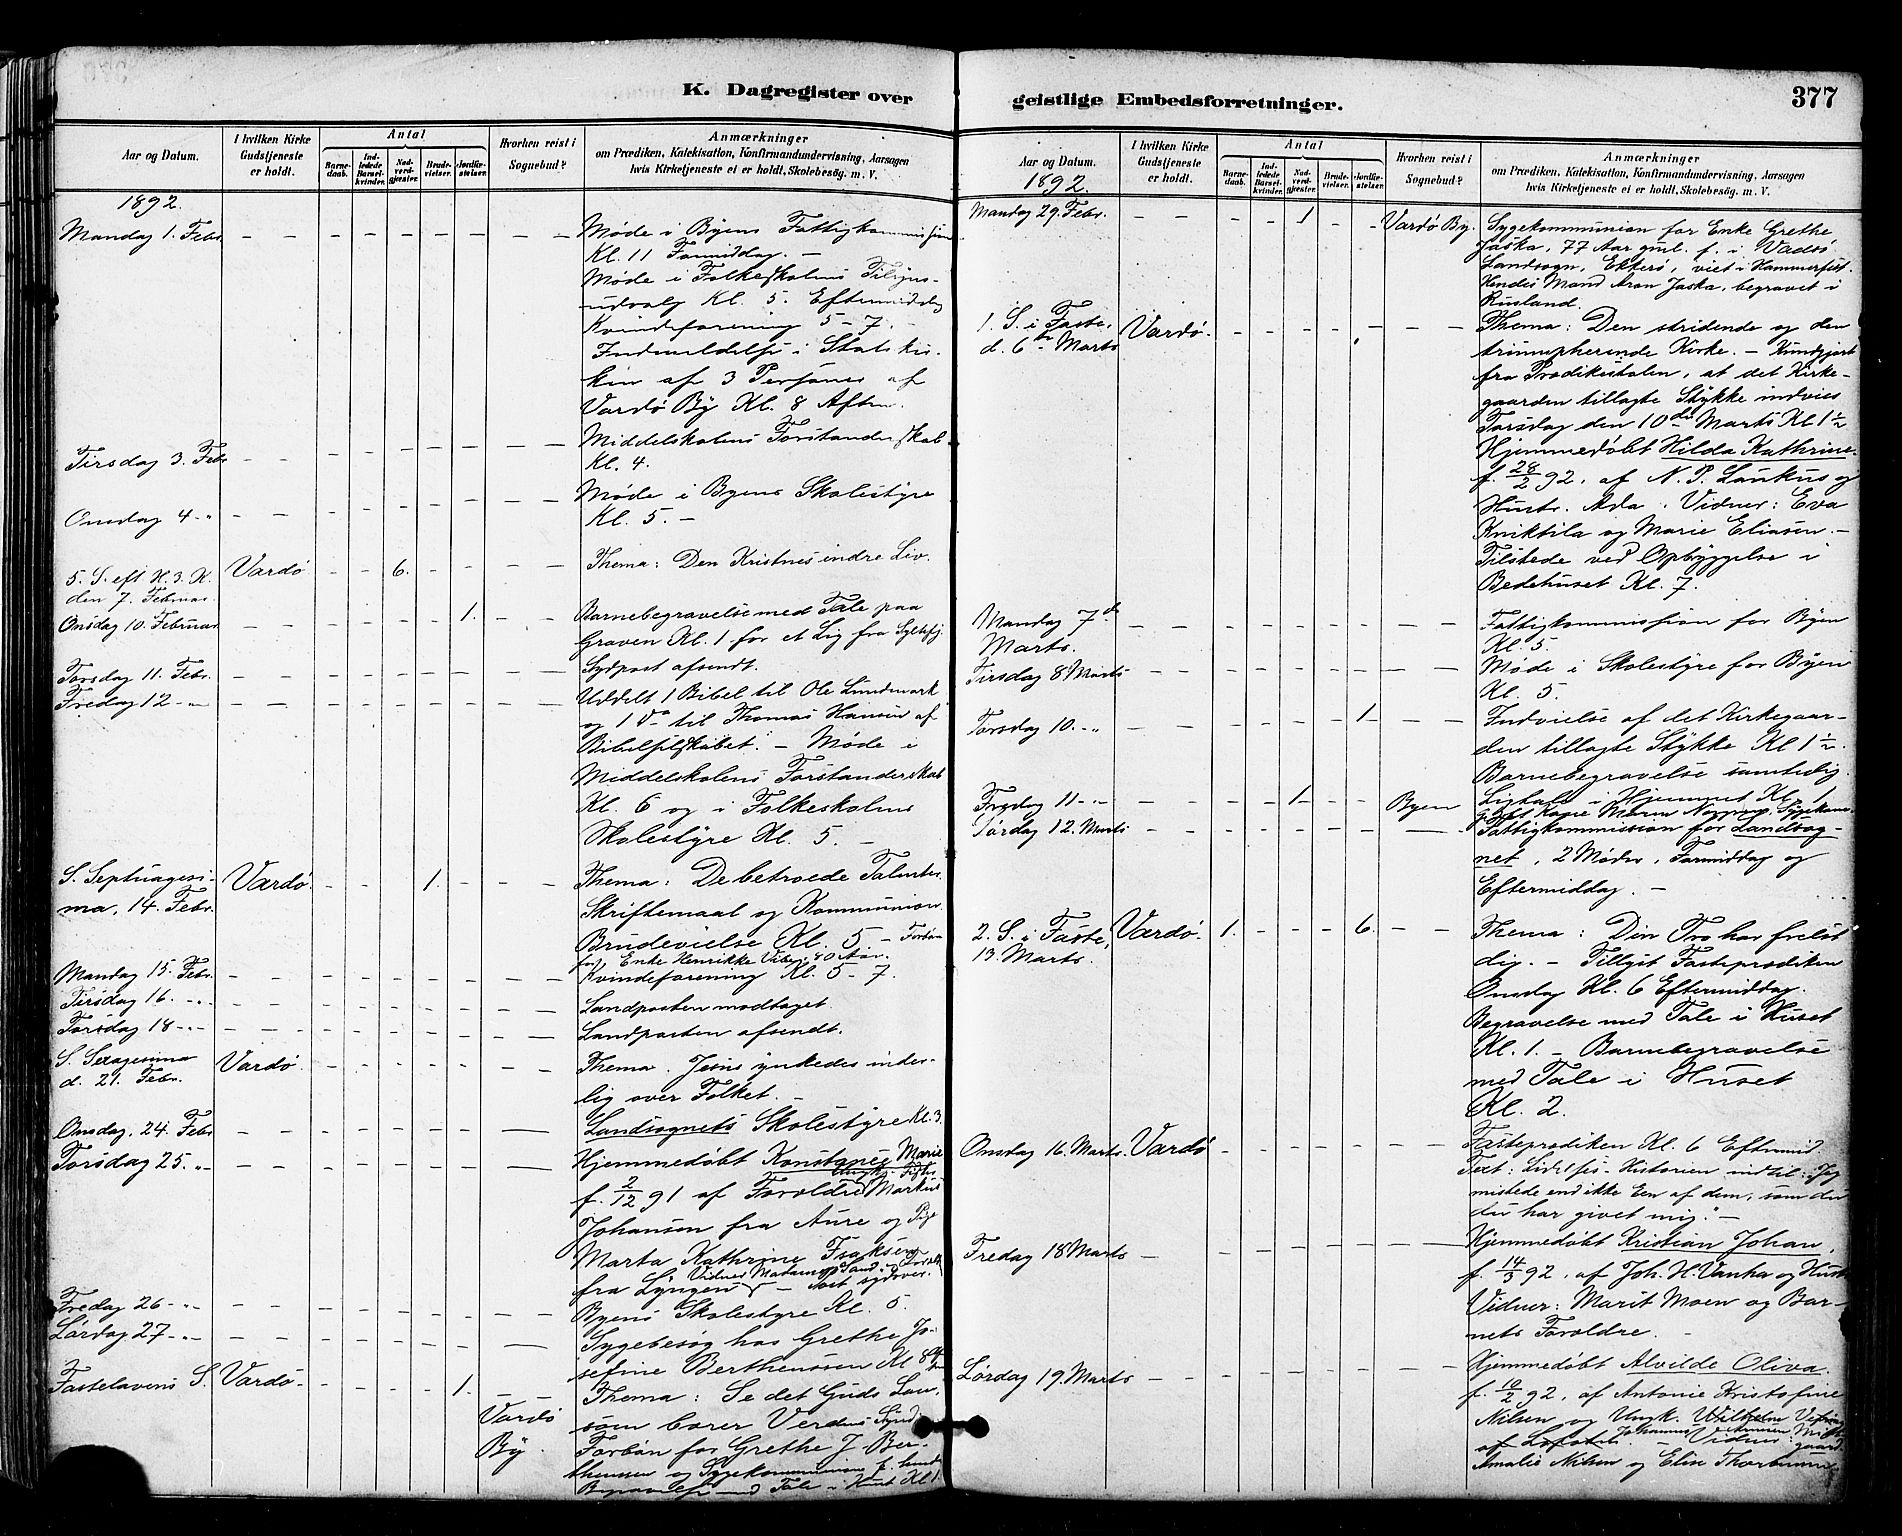 K. Dagregister over
Aar og Datum.
I hvilken Kirke
Gudstjeneste
er holdt.
Antal
Barne-
daab.
Ind-
ledede
Barsel-
kvinder.
Nad-
verd-
gjester.
Brude-
vielser.
Jordfæ-
stelser.
Hvorhen reist i
Sognebud?
Anmærkninger
om Prædiken, Katekisation, Konfirmandundervisning, Aarsagen
hvis Kirketjeneste ei er holdt, Skolebesøg. m. V.
1892.
Mandag 1. Febr. Møde i Byens Fattigkommission
Kl. 11 Formiddag. —
Møde i Folkeskolens Tilsyns-
udvalg Kl. 5. Eftermiddag
Kvindeforening 5-7. -
Indmeldelse i Statskir-
ken af 3 Personer af
Vardø By Kl. 8 Aften.
Tirsdag 3. Febr Middelskolens Forstanderskab
Kl. 4.
Onsdag 4 - " Møde i Byens Skolestyre
Kl. 5. —
5. S. eft H. 3. K. Vardø 6. Thema: Den Kristnes indre Liv.
den 7. Februar.
Onsdag 10. Februar 1. Barnebegravelse med Tale paa
Graven Kl. 1 for et Lig fra Syltefj.
Torsdag 11. Febr. Sydpost afsendt.
Fredag 12 - " Uddelt 1 Bibel til Ole Lundmark
og 1 do til Thomas Hansen af
Bibelselskabet. — Møde i
Middelskolens Forstanderskab
Kl. 6 og i Folkeskolens
Skolestyre Kl. 5. —
S. Septuagesi- Vardø. 1. Thema: De betroede Talenter.
ma, 14. Febr. Skriftemaal og Kommunion.
Brudevielse Kl. 5. — Forbøn
for Enke Henrikke 80 Aar.
Mandag 15. Febr. Kvindeforening Kl. 5-7
Tirsdag 16. - " Landposten modtaget
Torsdag 18 - " Landposten afsendt.
S. Sexagesima Vardø. Thema. Jesus ynkedes inder-
d. 21. Febr. lig over Folket. —
Onsdag, 24. Febr Landsognets Skolestyre Kl. 3.
Torsdag 25. " Hjemmedøbt Konstanse Marie
f. 2/12 91 af Forældre Ungk. Markus
Johansen fra Aure og Pige
Marta Kathrine Isaksen
Vidner Madam Sand
fra Lyngen
Fredag 26 - " Byens Skolestyre Kl. 5.
Lørdag 27 - " Sygebesøg hos Grethe Jo-
sefine Berthenssen Kl 8
Fastelavens S. Vardø. 1. Thema: Se det Guds Lam,
Vardø som bærer Verdens Synd
By. Forbøn for Grethe J. Ber-
thenssen og Sygekommunion f. hende
Begravelse med Tale i Huset Kl 1.
geistlige Embedsforretninger.
377
Aar og Datum.
1892.
I hvilken Kirke
Gudstjeneste
er holdt.
Antal
Barne-
daab.
Ind-
ledede
Barsel-
kvinder.
Nad-
verd-
gjester.
Brude-
vielser.
Jordfæ-
stelser.
Hvorhen reist i
Sognebud?
Anmærkninger
om Prædiken, Katekisation, Konfirmandundervisning, Aarsagen
hvis Kirketjeneste ei er holdt, Skolebesøg. m. V.
Mandag 29. Febr. 1 Vardø By. Sygekommunion for Enke Grethe
Jaska, 77 Aar gml. f. i Vadsø
Landsogn, Ekkerø, viet i Hammerfest.
Hendes Mand Aron Jaska, begravet i
Rusland.
1. S. i Faste, Vardø. Thema: Den stridende og den
d. 6te Marts triumpherende Kirke. — Kundgjort
fra Prædikestolen, at det Kirke-
gaarden tillagte Stykke indvies
Torsdag den 10de Marts Kl 1 1/2
Hjemmedøbt Hilda Kathrine.
f. 28/2 92, af N. P. Laukus og
Hustr. Ada. Vidner: Eva
Kniktila og Marie Eliasen. —
Tilstede ved Opbyggelse i
Bedehuset Kl. 7.
Mandag 7de Fattigkommission for Byen
Marts. Kl. 5.
Tirsdag 8 Marts Møde i Skolestyre for Byen
Kl. 5.
Torsdag 10. - " 1. Indvielse af det Kirkegaar-
den tillagte Stykke Kl 1 1/2.
Barnebegravelse samtidig.
Fredag 11 - " 1 Byen Ligtale i Hjemmet Kl. 1
Lørdag 12. Marts Fattigkommission for Landsog-
net, 2 Møder, Formiddag og
Eftermiddag. —
2. S. i Faste, Vardø. 1. 6. Thema: Din Tro har frelst
13. Marts. dig. — Tillyst Fasteprædiken
Onsdag Kl. 6 Eftermiddag.
Begravelse med Tale i Huset
Kl. 1. — Barnebegravelse
med Tale i Huset
Kl. 2.
Onsdag 16. Marts. Vardø Fasteprædiken Kl. 6 Eftermid.
Text: Lidelses-Historien indtil: "Jeg
mistede end ikke Een af dem, som du
du har givet mig." —
Fredag 18 Marts Hjemmedøbt Kristian Johan,
f. 14/3 92, af Joh. H. Vanha og Hustr
Vidner: Marit Moen og Bar-
nets Forældre. -
Lørdag 19. Marts Hjemmedøbt Alvilde Oliva
f. 10/2 92, af Antonie Kristofine
Nilsen og Ungk. Wilhelm
Johannes Vidner:
Amalie Nilsen og Elise